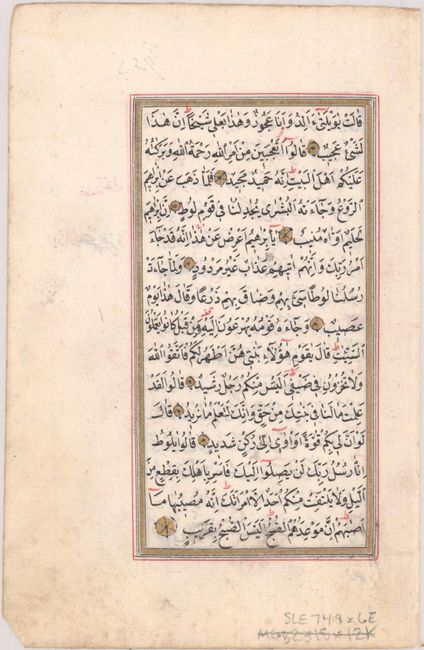 قالت يويلتىء الد وانا عجوز وهذا بعلى شيخا ان هذا
لشىء عجيب قالوا اتعجبين من امر الله رحمة الله وبركته
عليكم اهل البيت انه حميد مجيد فلما ذهب عن ابرهيم
الروع وجاءته البشرى يجدلنا فى قوم لوط ان ابرهيم
لحليم اواه منيب يا برهيم اعرض عن هذا انه قد جاء
امر ربك وانهم اتيهم عذاب غير مردود ولما جاءت
رسلنا لوطا سىء بهم وضاق بهم ذرعا وقال هذا يوم
عصيب وجاءه قومه يهرعون اليه ومن قبل كانوا يعملون
السيئت قال يقوم هؤلاء بناتى هن اطهر لكم فاتقوا الله
ولا تخزون فى ضيفى اليس منكم رجل رشيد قالوا لقد
علمت مالنا فى بنتك من حق وانك لتعلم ما نريد قال
لو ان لى بكم قوة او اوى الى ركن شديد قالوا يلوط
انا رسل ربك لن يصلوا اليك فاسر باهلك بقطع من
اليل ولا يلتفت منكم احد الا امراتك انه مصيبها ما
اصابهم ان موعدهم الصبح اليس الصبح بقريب
SLE749 x 6E